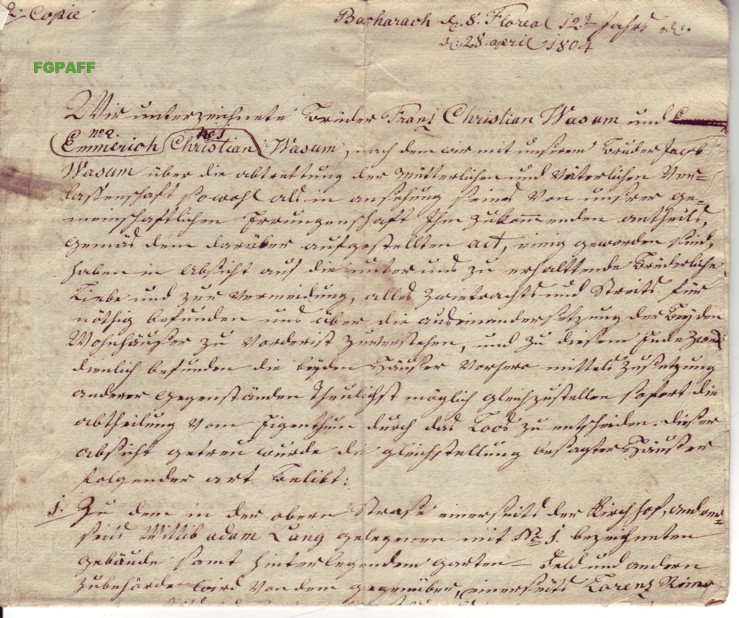 Copie
Bacharach d. 8. Floreal 12t Jahrs od.
d. 28 april 1804
FGPAFF
Wir unterzeichnete Brüder Franz Christian Wasum und
No 2. No 1
Emmerich Christian Wasum, nach dem wir mit unserem Bruder Jacob
Wasum über die abtrettung der Mütterlichen und Väterlichen Ver=
lassenschaft sowohl als in ansehung seines von unsrer ge=
meinschaftlichen Irrungenschaft Ihm zukommenden antheils,
gemäs dem darüber aufgestellten act, einig geworden sind,
haben in absicht auf die unter uns zu erhalttende Brüderliche
Liebe und zur Vermeidung, alles Zwietrachts und Streits für
nöthig befunden uns über die auseinandersetzung der beyden
Wohnhäuser zu vorderist zu verstehen, und zu diesem Ende
dienlich befunden die beyden Häuser vorhero mittels Zusetzung
anderer gegenständen theulichst möglich gleichzustellen sofort die
abtheilung vom Eigenthum durch das Loos zu entscheiden. Dieser
absicht getreu wurde die gleichstellung besagter Häuser
folgender art belibt:
1. Zu dem in der obern Strase einerseits der Kirchhof, andrer=
seits Wittib adam Lang gelegenen mit No 1. bezeichneten
gebäude samt hinterliegenden garten Feld und andern
Zubehörde wird von dem gegenüber, einerseits Lorenz